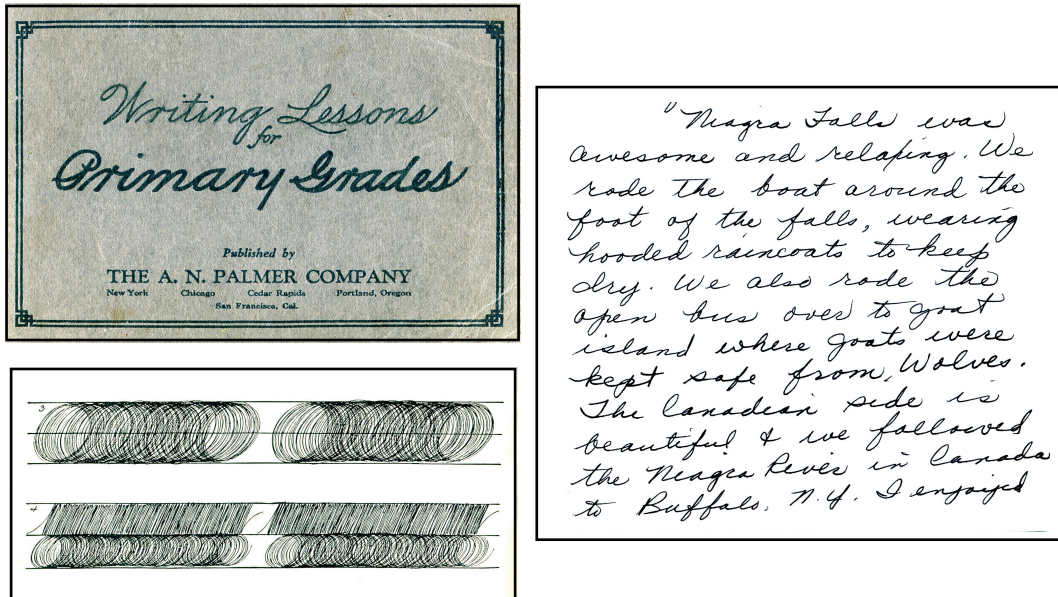 Writing Lessons
for
Primary Grades
Published by
THE A. N. PALMER COMPANY
New York Chicago Cedar Rapids Portland, Oregon
San Francisco, Cal.
3
4
"Niagra Falls was
awesome and relaxing. We
rode the boat around the
foot of the falls, wearing
hooded raincoats to keep
dry. We also rode the
open bus over to goat
island where goats were
kept safe from, Wolves.
The Canadian side is
beautiful & we followed
the Niagra River in Canada
to Buffalo, N.Y. I enjoyed